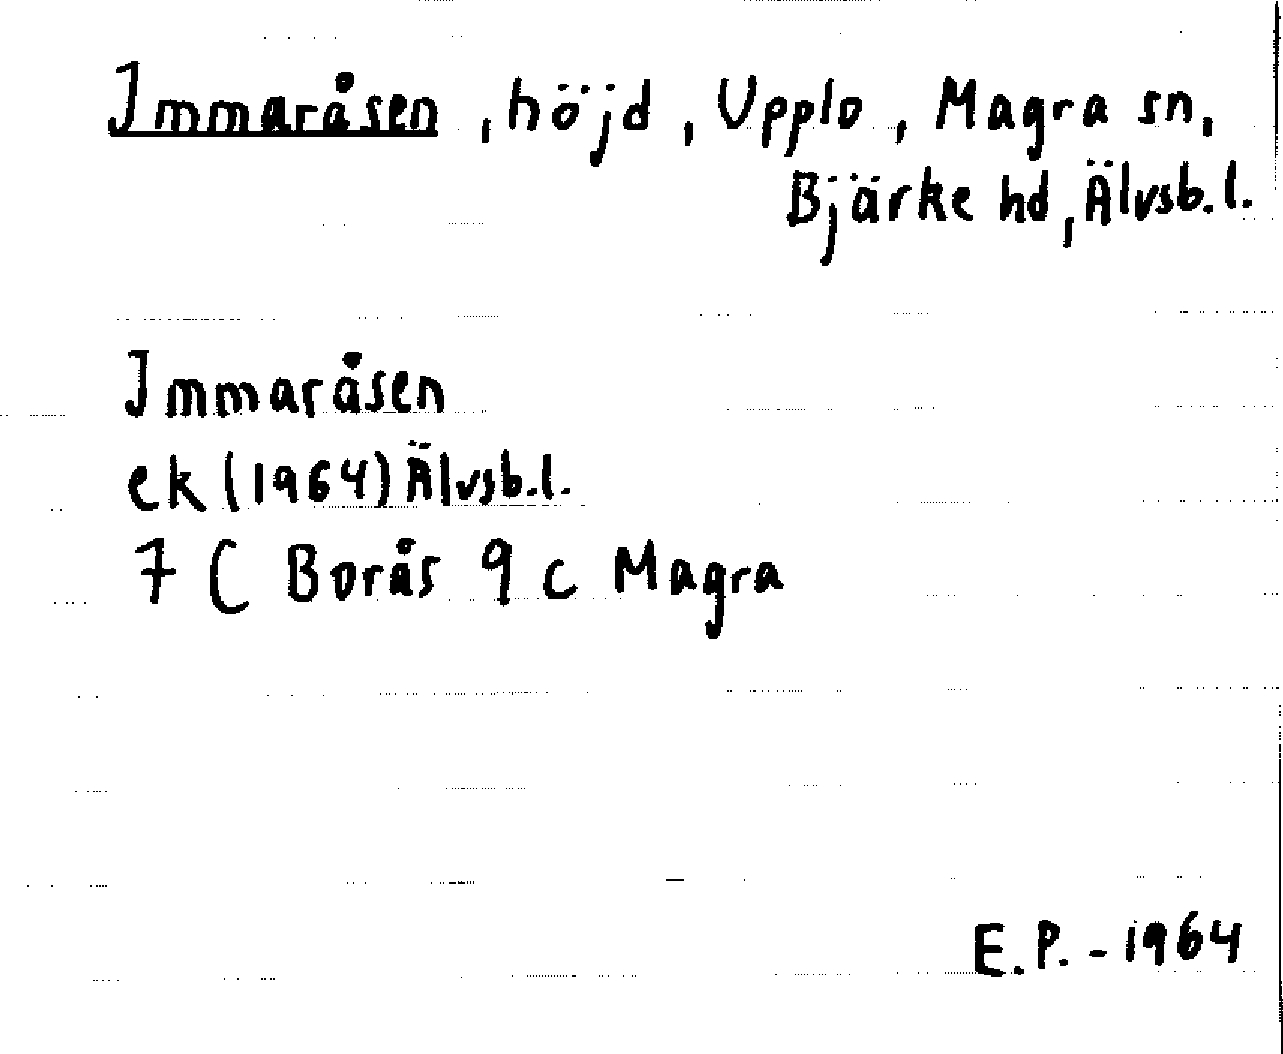 Immaråsen, höjd, Upplo, Magra sn,
Bjärke hd, Älvsb.l.
Immaråsen
ek (1964) Älvsb.l.
7 C Borås 9 c Magra
E.P. - 1964